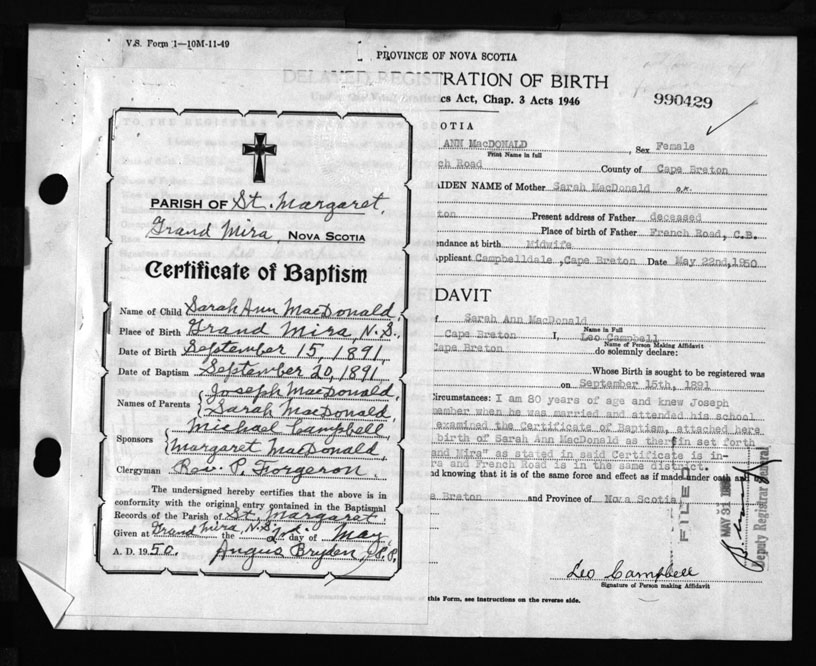 V.S. Form 1—10M-11-49
PROVINCE OF NOVA SCOTIA
DELAYED REGISTRATION OF BIRTH
cs Act, Chap. 3 Acts 1946
990429
PARISH OF St. Margaret,
Grand Mira, NOVA SCOTIA
Certificate of Baptism
Name of Child Sarah Ann MacDonald,
Place of Birth Grand Mira, N.S.,
Date of Birth September 15, 1891
Date of Baptism September 20, 1891
Names of Parents { Joseph MacDonald,
Sarah MacDonald,
Sponsors { Michael Campbell,
Margaret MacDonald,
Clergyman Rev. P. Forgeron.
The undersigned hereby certifies that the above is in
conformity with the original entry contained in the Baptismal
Records of the Parish of St. Margaret,
Given at Grand Mira, N.S. the day of May,
A. D. 1950. Angus Bryden, P.P.
OTIA
ANN MacDONALD, Sex Female
Print Name in full
ch Road County of Cape Breton
AIDEN NAME of Mother Sarah MacDonald o.k.
ton Present address of Father deceased
Place of birth of Father French Road, C.B.
endance at birth Midwife
pplicant Campbelldale, Cape Breton Date May 22nd, 1950
DAVIT
f Sarah Ann MacDonald
Name in Full
Cape Breton I, Leo Campbell
Name of Person Making Affidavit
Cape Breton do solemnly declare:
Whose Birth is sought to be registered was
on September 15th, 1891
ircumstances: I am 80 years of age and knew Joseph
ember when he was married and attended his school
examined the Certificate of Baptism, attached here
birth of Sarah Ann MacDonald as therein set forth
and Mira" as stated in said Certificate is in-
ra and French Road is in the same district.
d knowing that it is of the same force and effect as if made under oath and
e Breton and Province of Nova Scotia
FILED
MAY 31
Deputy Registrar General
Leo Campbell
Signature of Person making Affidavit
this Form, see Instructions on the reverse side.